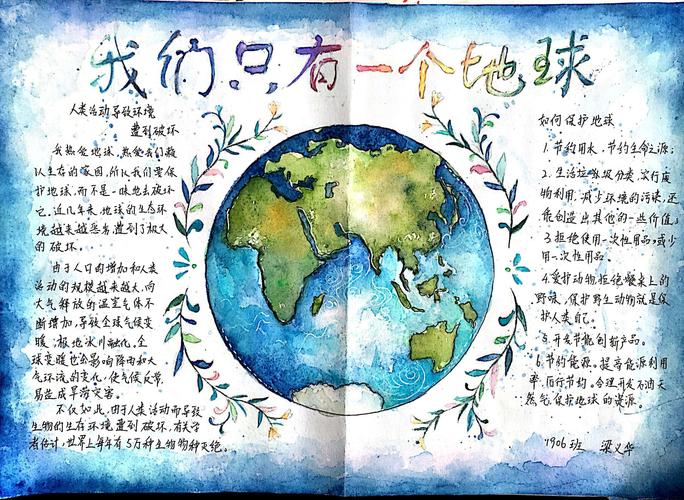 我们只有一个地球
人类活动导致环境
遭到破坏
我热爱地球,热爱我们赖
以生存的家园,所以我们要保
护地球,而不是一味地去破坏
它。近几年来,地球的生态环
境越来越恶劣,遭到了极大
的破坏。
由于人口的增加和人类
活动的规模越来越大,向
大气释放的温室气体不
断增加,导致全球气候变
暖,极地冰川融化。全
球变暖也会影响降雨和大
气环流的变化,使气候反常,
易造成旱涝灾害。
不仅如此,由于人类活动而导致
生物的生存环境遭到破坏,有关学
者估计,世界上每年有5万种生物物种灭绝。
如何保护地球
1.节约用水,节约生命之源;
2.生活垃圾分类,实行废
物利用,减少环境的污染,还
能创造出其他的一些价值;
3.拒绝使用一次性用品,或少
用一次性用品。
4.爱护动物,拒绝餐桌上的
野味,保护野生动物就是保
护人类自己。
5.开发节能创新产品。
6.节约能源。提高能源利用
率,厉行节约,合理开发石油天
然气,保护地球的资源。
1906班 梁义华